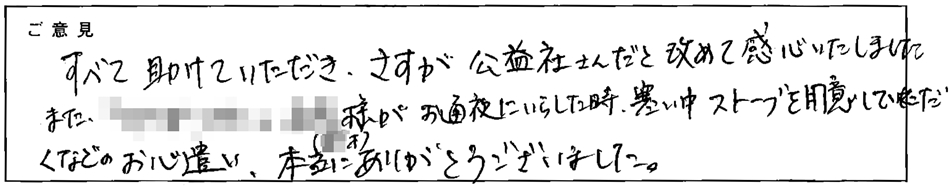 ご意見
すべて助けていただき、さすが公益社さんだと改めて感心いたしました
また、様がお通夜にいらした時、寒い中ストーブを用意して頂ただ
くなどのお心遣い、本当にありがとうございました。